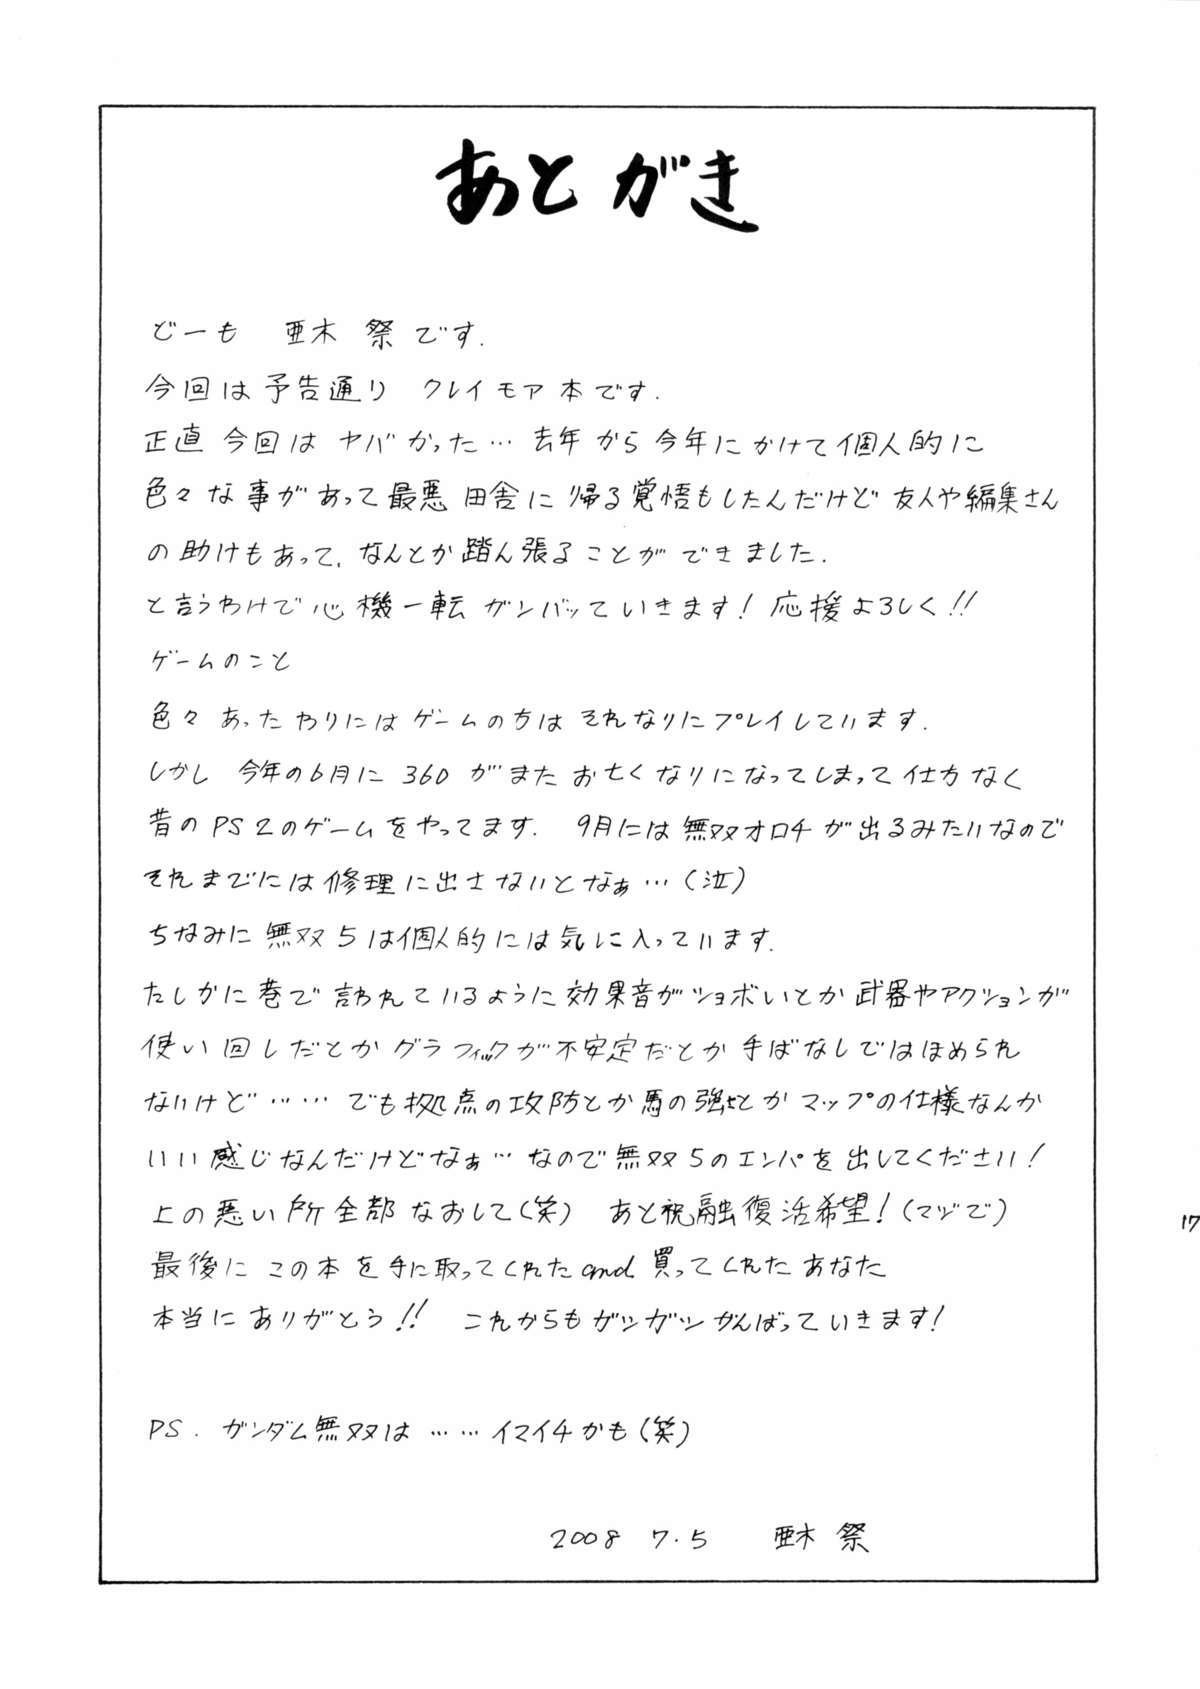 あとがき
どーも 亜木 祭です.
今回は予告通り クレイモア本です.
正直今回はヤバかった…去年から今年にかけて個人的に
色々な事があって最悪田舎に帰る覚悟もしたんだけど友人や編集さん
の助けもあって、なんとか踏ん張ることができました.
と言うわけで心機一転ガンバッていきます!応援よろしく!!
ゲームのこと
色々あったわりにはゲームの方はそれなりにプレイしています.
しかし 今年の6月に360がまたお亡くなりになってしまって仕方なく
昔のPS2のゲームをやってます. 9月には無双オロチが出るみたいなので
それまでには修理に出さないとなぁ…(泣)
ちなみに無双5は個人的には気に入っています.
たしかに巷で言われているように効果音がショボいとか武器やアクションが
使い回しだとかグラフィックが不安定だとか手ばなしではほめられ
ないけど……でも拠点の攻防とか馬の強さとかマップの仕様なんか
いい感じなんだけどなぁ…なので無双5のエンパを出してください!
上の悪い所全部なおして(笑) あと祝融復活希望!(マヅで)
最後にこの本を手に取ってくれたand買ってくれたあなた
本当にありがとう!! これからもガツガツがんばっていきます!
PS. ガンダム無双は……イマイチかも(笑)
2008 7.5 亜木 祭
17